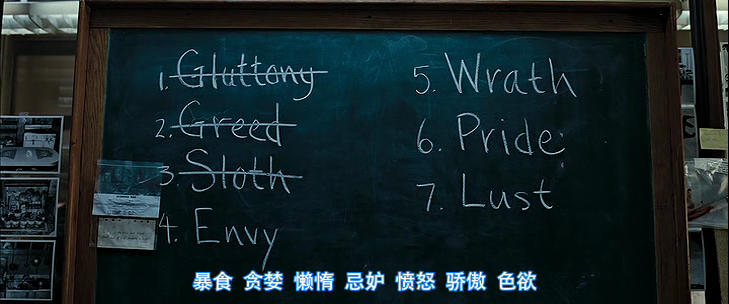 1. Gluttony
2. Greed
3. Sloth
4. Envy
5. Wrath
6. Pride
7. Lust
暴食 贪婪 懒惰 忌妒 愤怒 骄傲 色欲